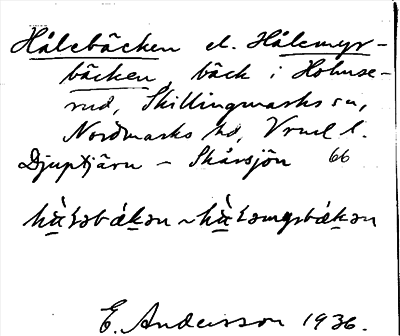 Hålebäcken el. Hålemyr-
bäcken, bäck i Hohuse-
rud, Skillingmarks sn,
Nordmarks hd, Vrml l.
Djuptjärn – Skårsjön 66
E. Andersson 1936.